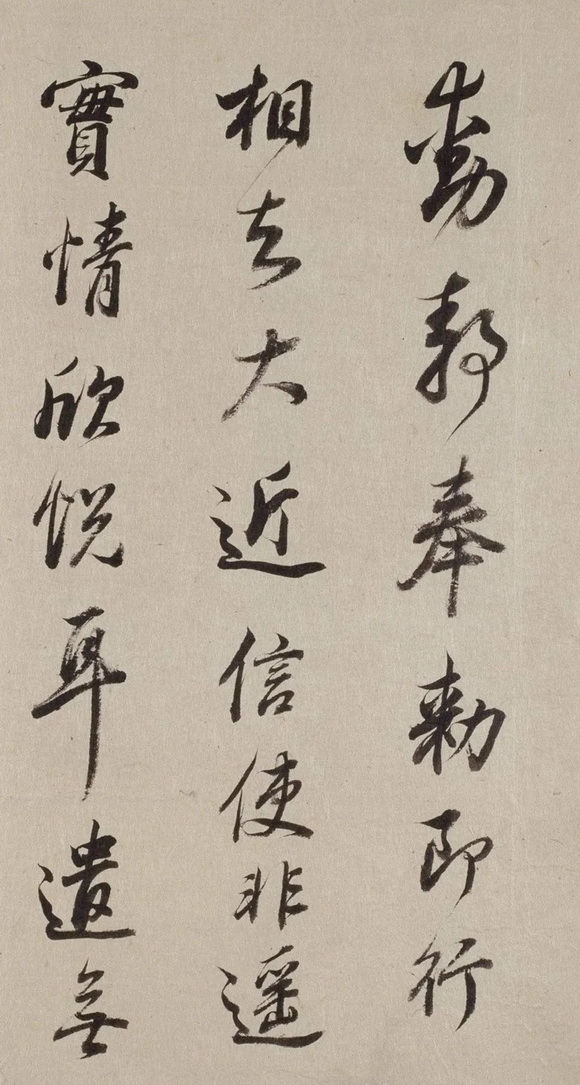 動静奉勅即行
相去大近信使非遥
實情欣悦耳遣無